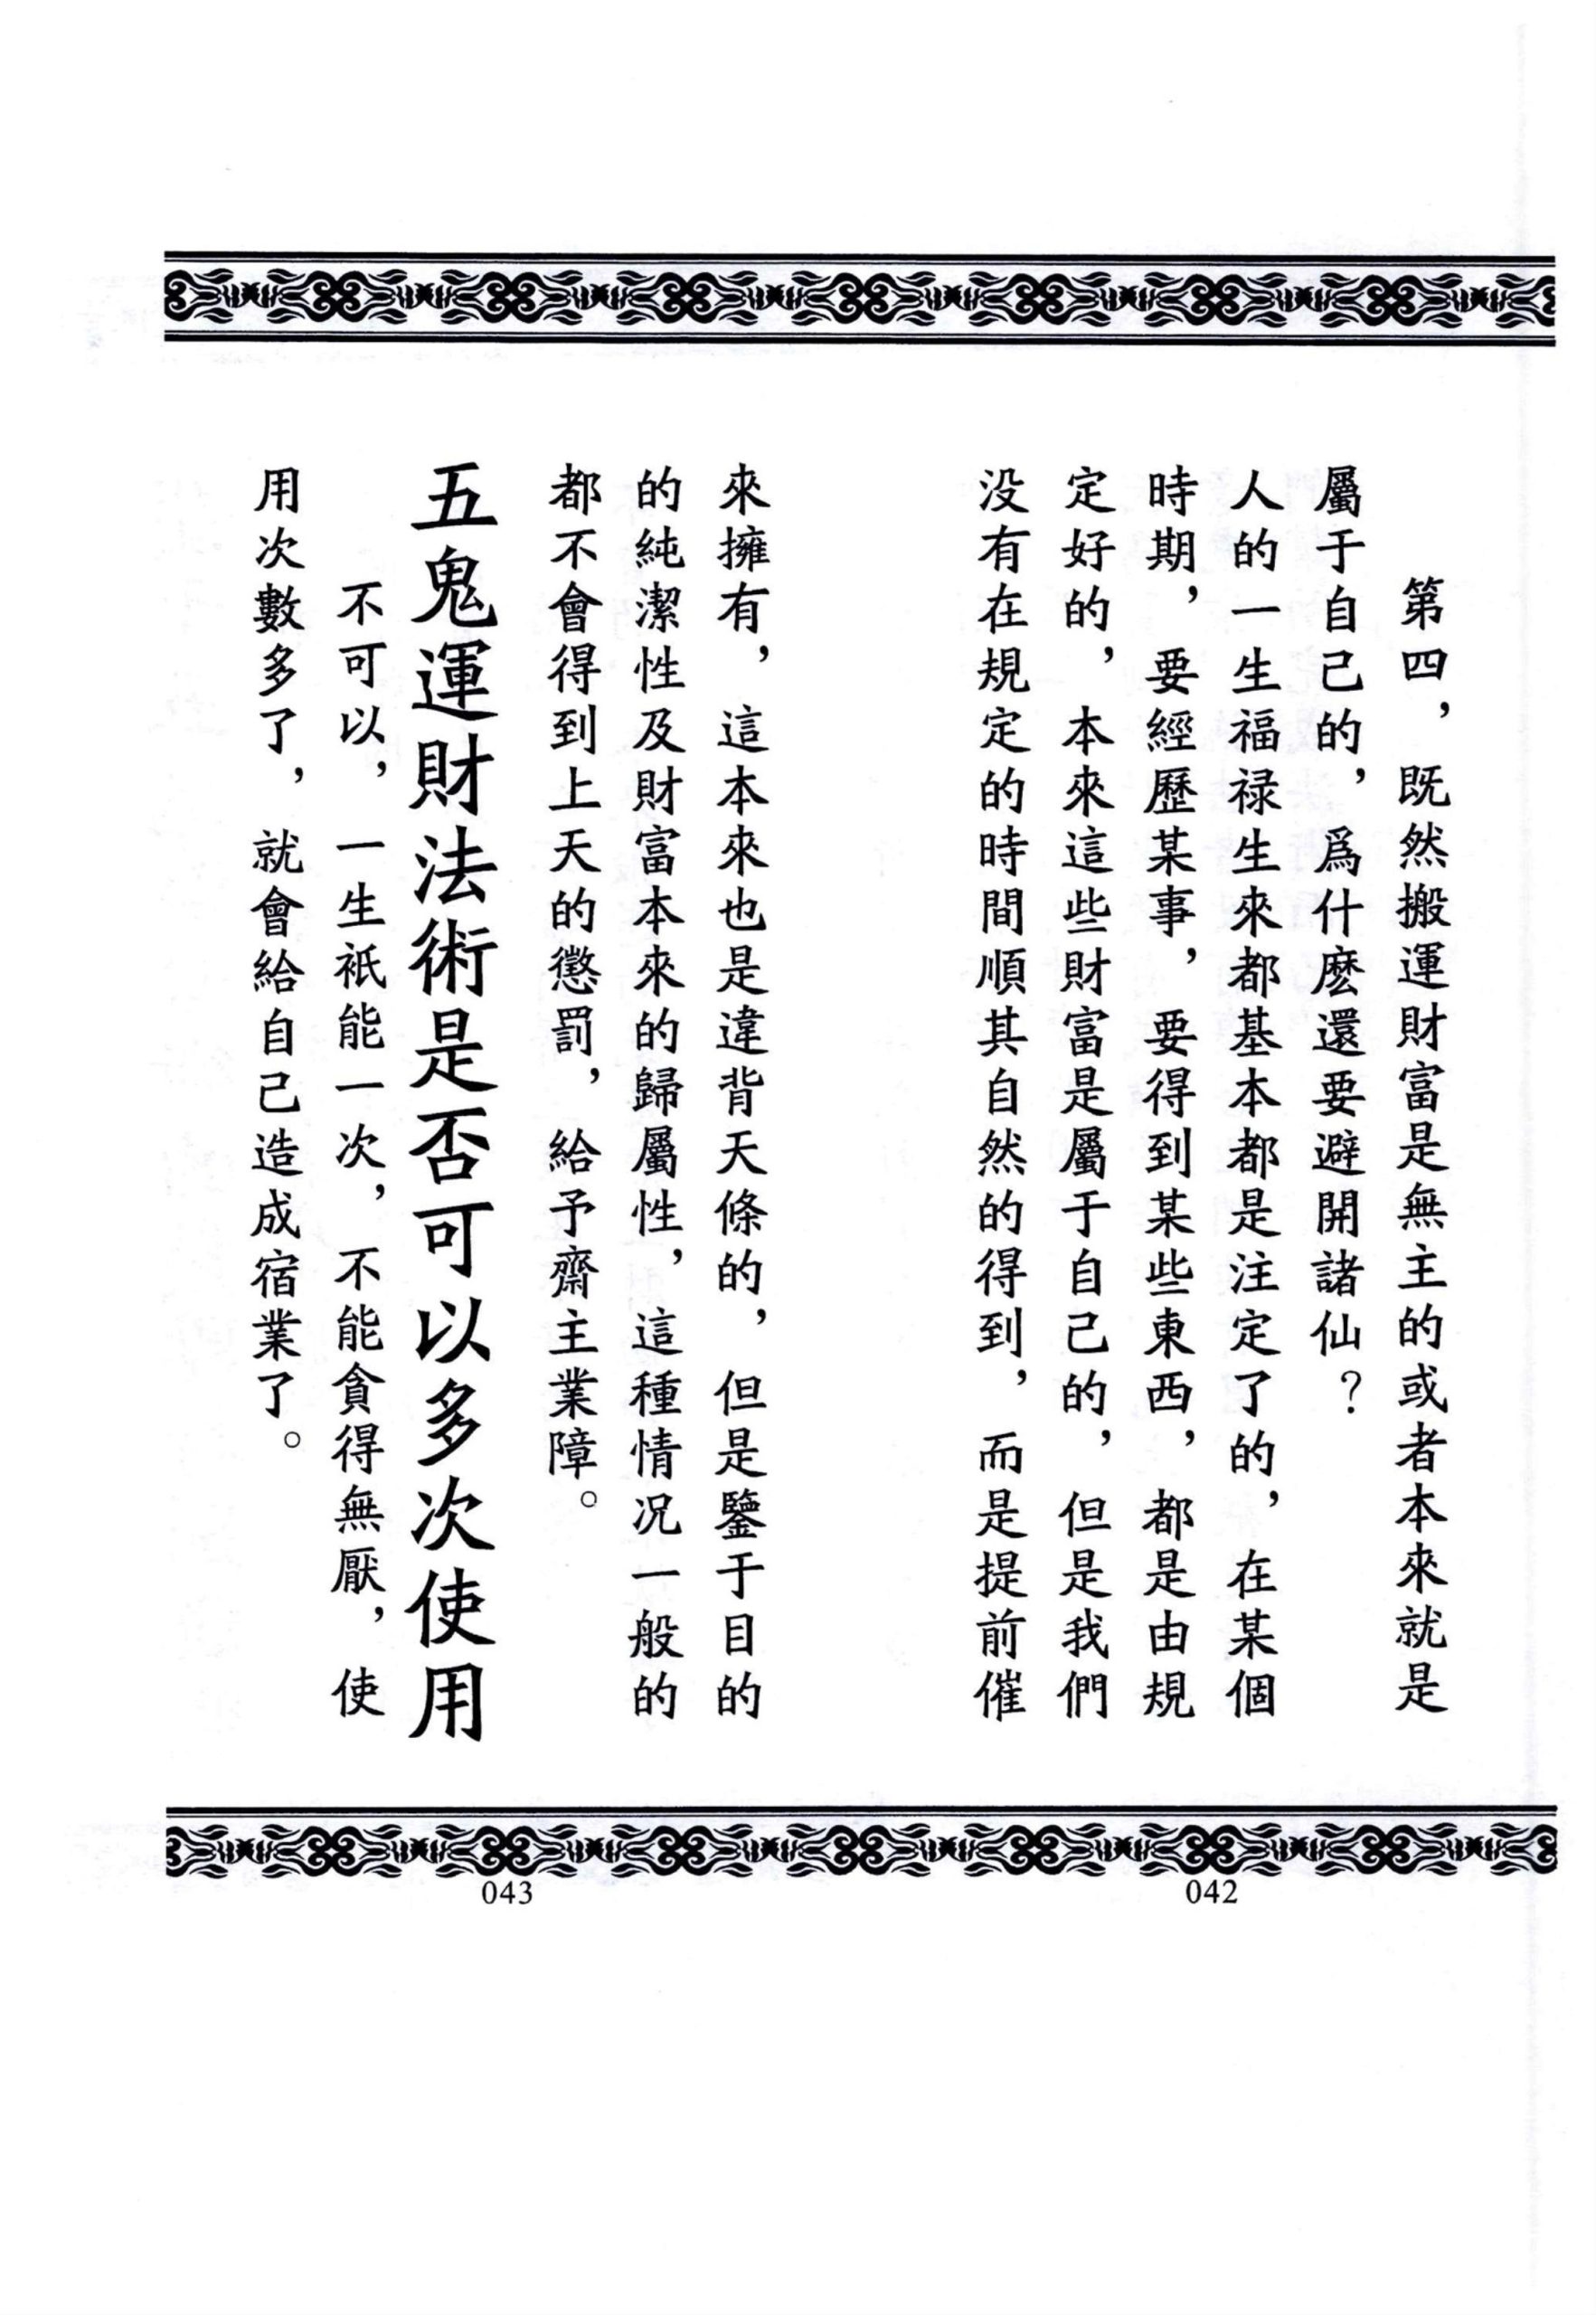 第四，既然搬運財富是無主的或者本來就是
屬于自己的，爲什麽還要避開諸仙？
人的一生福禄生來都基本都是注定了的，在某個
時期，要經歷某事，要得到某些東西，都是由規
定好的，本來這些財富是屬于自己的，但是我們
没有在規定的時間順其自然的得到，而是提前催
042
來擁有，這本來也是違背天條的，但是鑒于目的
的純潔性及財富本來的歸屬性，這種情况一般的
都不會得到上天的懲罰，給予齋主業障。
五鬼運財法術是否可以多次使用
不可以，一生衹能一次，不能貪得無厭，使
用次數多了，就會給自己造成宿業了。
043